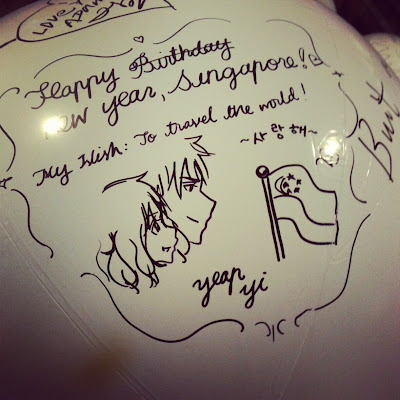 LOVE
Happy Birthday
New Year, Singapore!
My Wish: To travel the world!
~사랑해~
yeap
yi